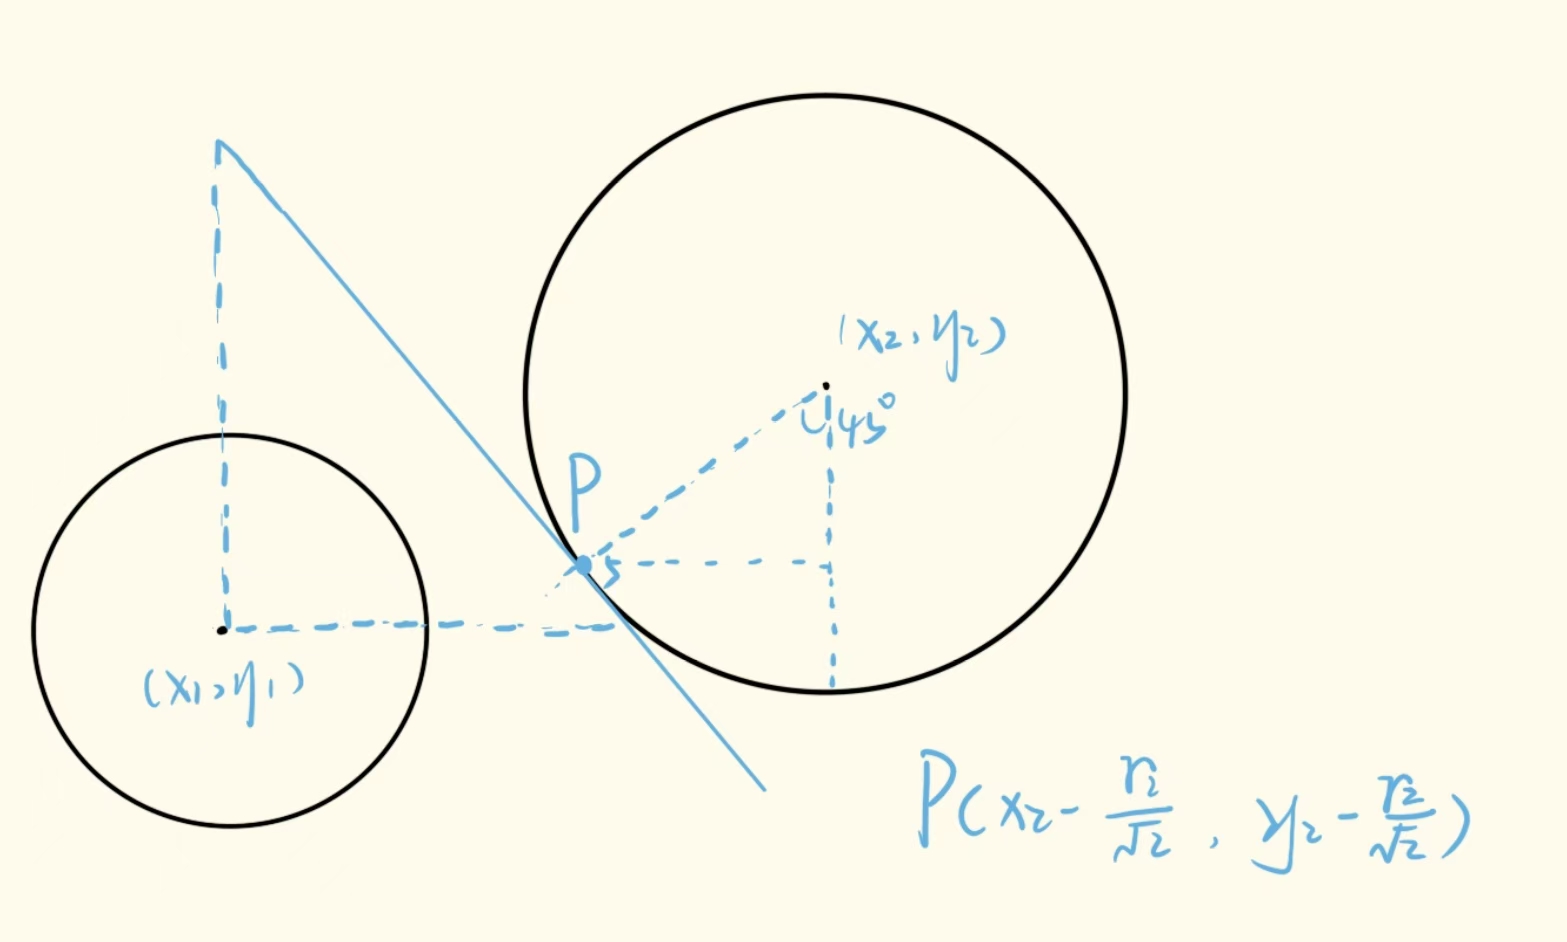 (x₂, y₂)
45°
P
5
(x₁, y₁)
P(x₂ - r₂/√2, y₂ - r₂/√2)